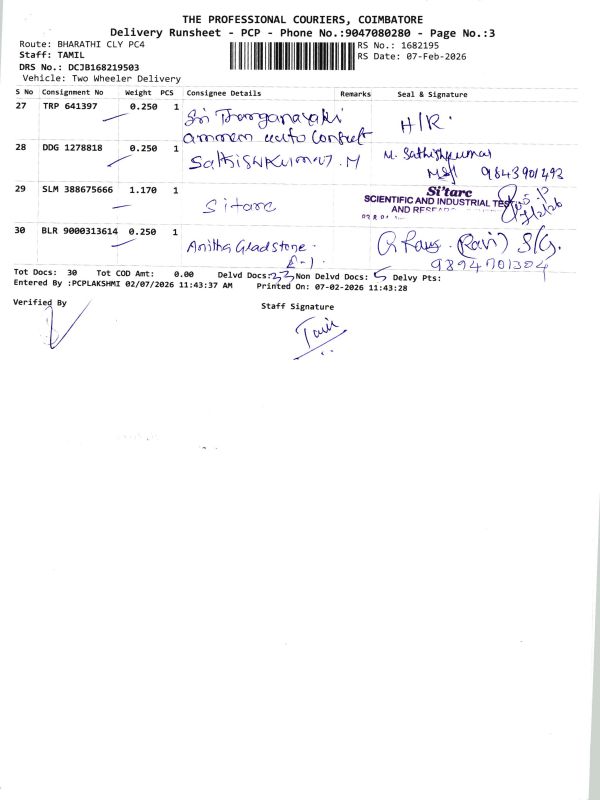 THE PROFESSIONAL COURIERS, COIMBATORE
Delivery Runsheet - PCP - Phone No.:9047080280 - Page No.:3
Route: BHARATHI CLY PC4
RS No.: 1682195
Staff: TAMIL
RS Date: 07-Feb-2026
DRS No.: DCJB168219503
Vehicle: Two Wheeler Delivery
S No Consignment No Weight PCS Consignee Details Remarks Seal & Signature
27 TRP 641397 0.250 1 Sri H/R.
ammem auto
28 DDG 1278818 0.250 1 Sathiskumar. M M. Sathishkumar
9843901493
29 SLM 388675666 1.170 1 Sitarc Si'tarc
SCIENTIFIC AND INDUSTRIAL
AND
7/2/26
30 BLR 9000313614 0.250 1 Anitha Gladstone. (Ravi) S/G.
9894701304
Tot Docs: 30 Tot COD Amt: 0.00 Delvd Docs: Non Delvd Docs: 5 Delvy Pts:
Entered By :PCPLAKSHMI 02/07/2026 11:43:37 AM Printed On: 07-02-2026 11:43:28
Verified By
Staff Signature